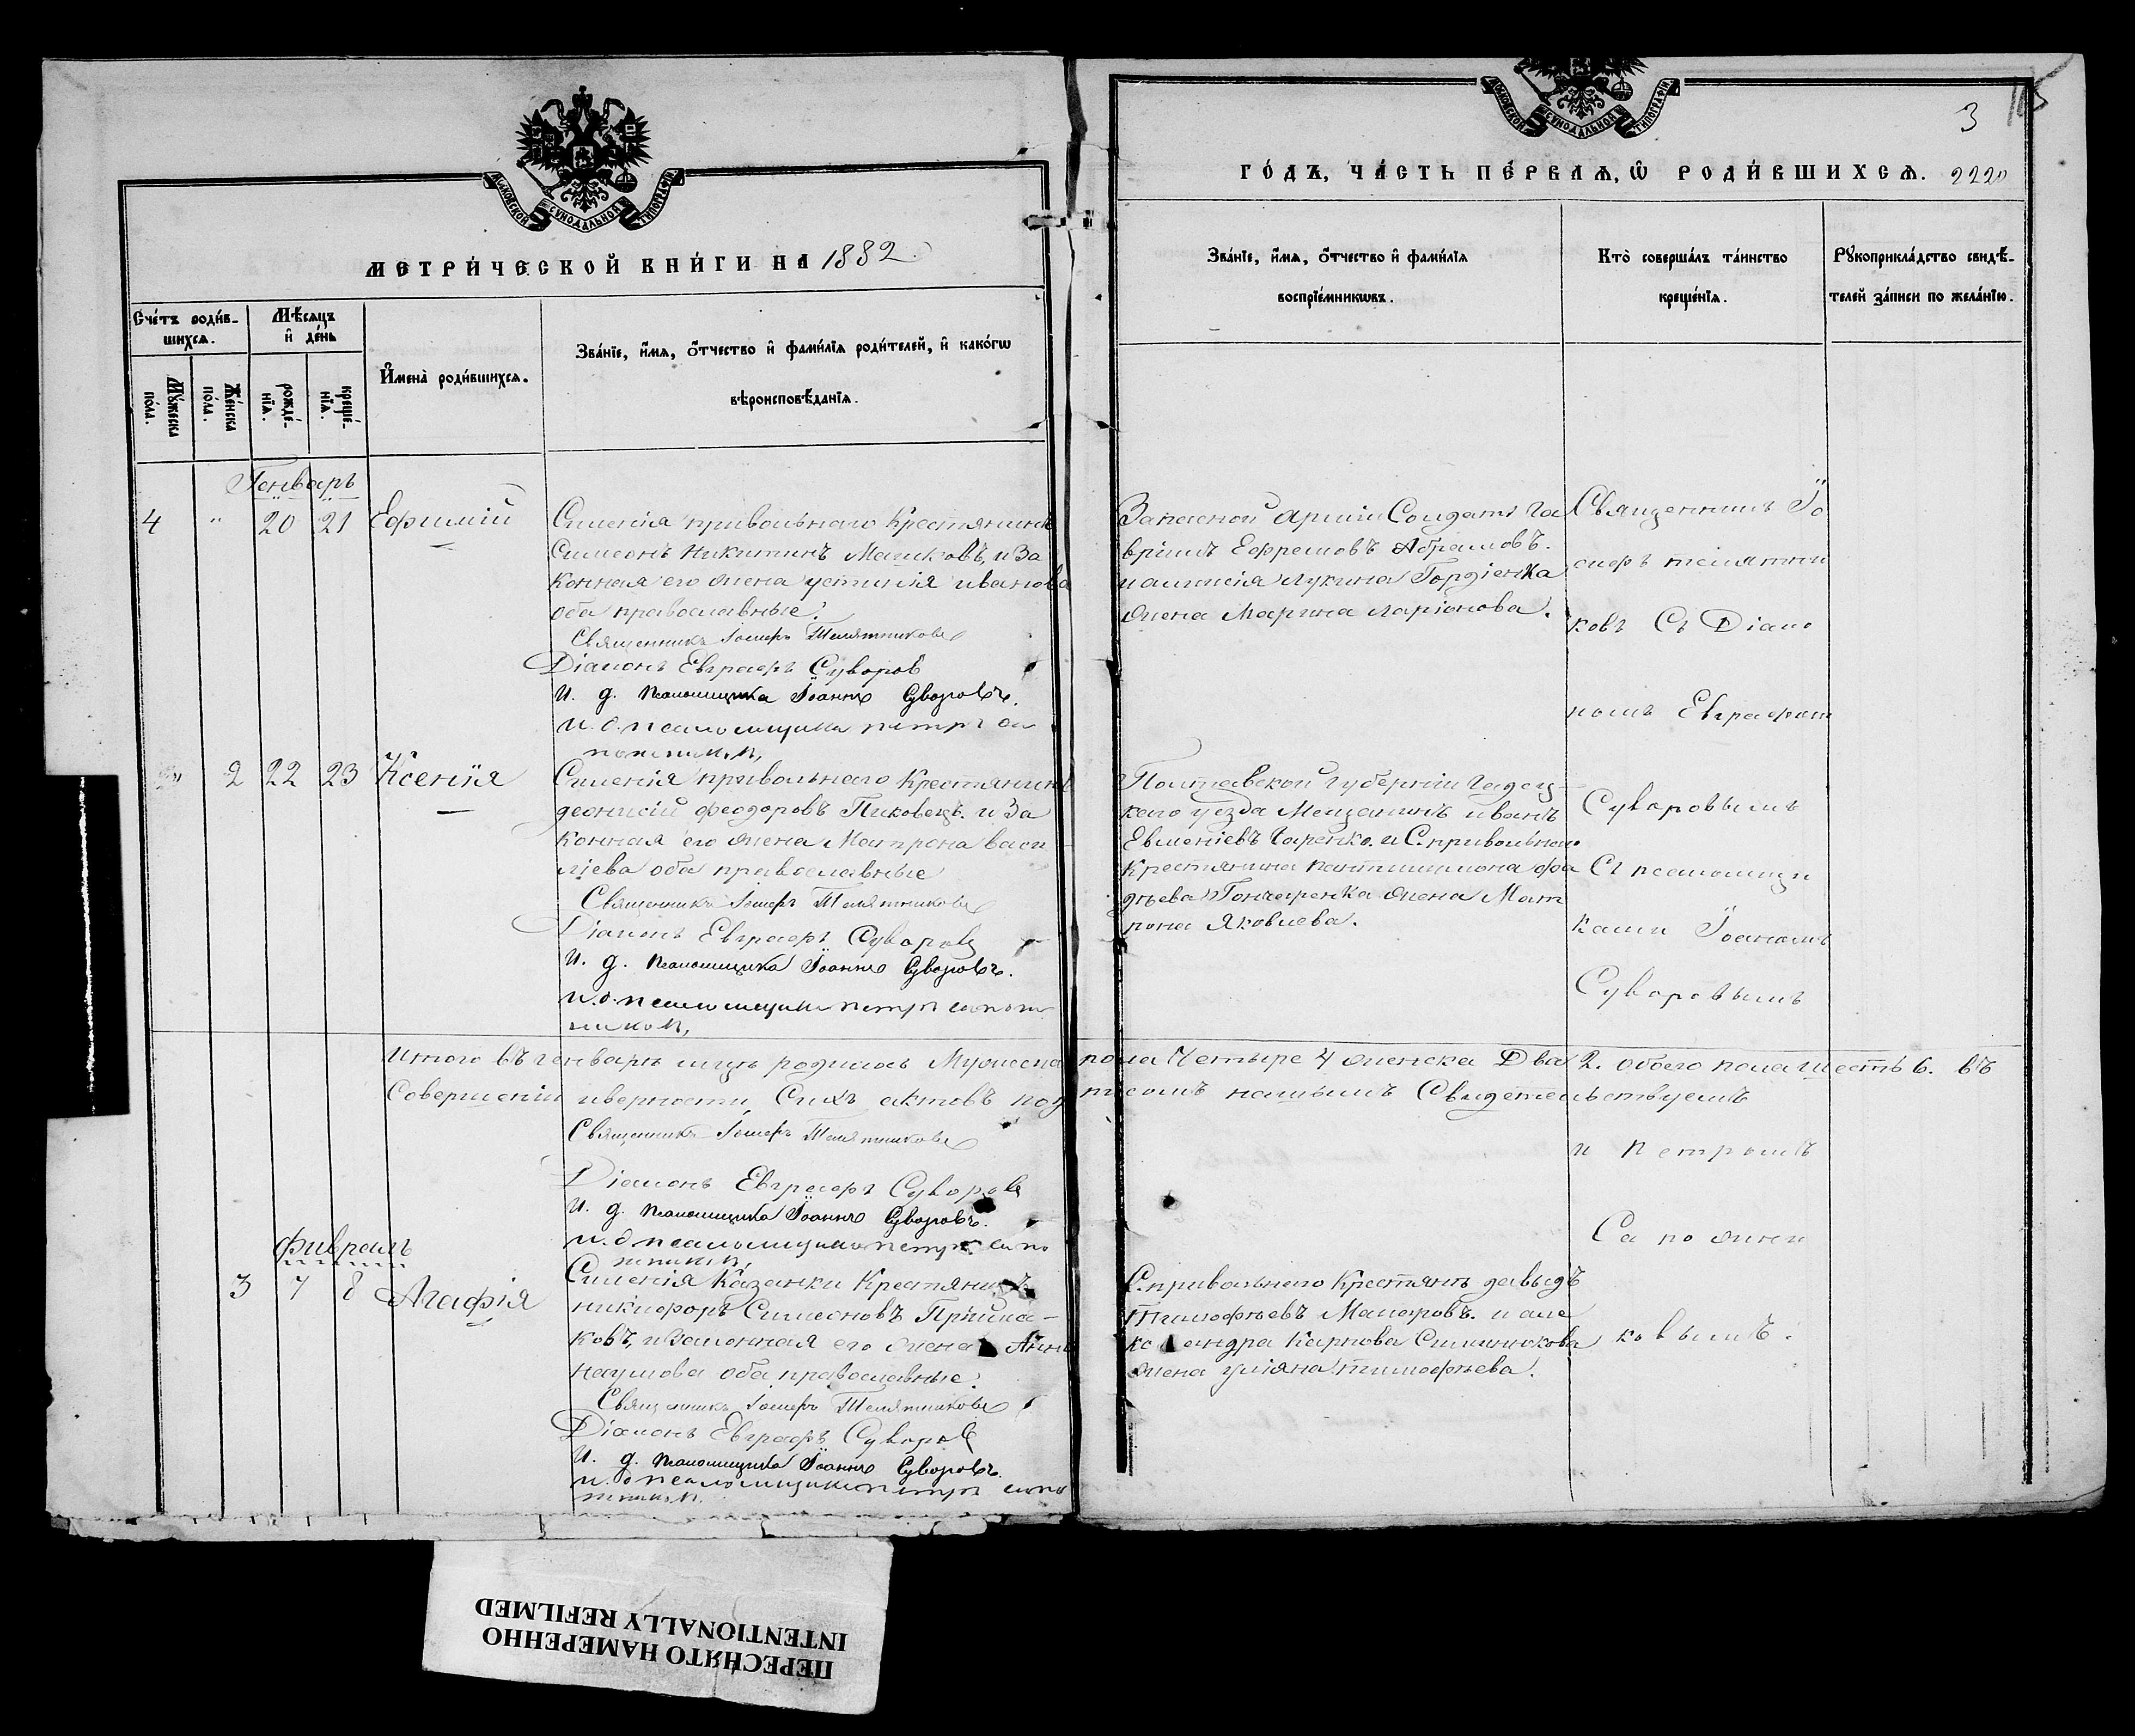 МОСКОВСКОЙ СѴНОДАЛЬНОЙ ТИПОГРАФІИ
МЕТРИ́ЧЕСКОЙ КНИ́ГИ НА 1882.
Сче́тъ роди́в-
шихсѧ.
Мѣ́сѧцъ
и҆ де́нь
Мꙋ́жеска
по́ла.
Же́нска
по́ла.
рожде́-
нїѧ.
креще́-
нїѧ.
И҆мена̀ роди́вшихсѧ.
Зва́нїе, и҆́мѧ, ѻ҆́тчество и҆ фами́лїѧ роди́телей, и҆ како́гѡ
вѣроисповѣ́данїѧ.
Генварь
4 " 20 21 Ефимій
Селенія привольнаго Крестянинъ
Симеонъ Никитинъ Машковъ, и За
конная его жена устинія иванова
оба православные.
Священникъ Іосифъ Телятниковъ
Діаконъ Евграфъ Суворов
И. д. псаломщика Іоаннъ Суворовъ.
и. д. псаломщика петръ са
пожников,
" 2 22 23 Ксенія
Селенія привольнаго Крестянинъ
деонисій феодоровъ Пиковецъ. и За
конная его жена Матрона васи
лїева оба православные
Священникъ Іосифъ Телятниковъ
Діаконъ Евграфъ Суворовъ
И. д. псаломщика Іоаннъ Суворовъ.
и. д. псаломщика петръ сапож
ников,
Итого въ генварѣ мцѣ родилось Мужеска
Совершеніи иверности Сихъ актовъ под
Священникъ Іосифъ Телятниковъ
Діаконъ Евграфъ Суворовъ
И. д. псаломщика Іоаннъ Суворовъ.
и. д псаломщика петръ сапо
жников,
Фивраль
3 7 8 Агафія
Селенія Казанки Крестянинъ
никифоръ Симеоновъ Пришла-
ковъ, и Законная его жена Анна
наумова оба православные.
Священникъ Іосифъ Телятниковъ
Діаконъ Евграфъ Суворов
И. д. псаломщика Іоаннъ Суворовъ.
и. д псаломщика петръ сапо
жников.
МОСКОВСКОЙ СѴНОДАЛЬНОЙ ТИПОГРАФІИ
3
ГО́ДЪ, ЧА́СТЬ ПЕ́РВАѦ, Ѽ РОДИ́ВШИХСѦ. 2220
Зва́нїе, и҆́мѧ, ѻ҆́тчество и҆ фами́лїѧ
воспрїе́мникѡвъ.
Кто̀ соверша́лъ та́инство
креще́нїѧ.
Рꙋкоприкла́дство свидѣ́-
телей за́писи по жела́нїю.
Запасной арміи Солдатъ Га
вріилъ Ефремовъ Абрамовъ.
и алексія Лукина Гордіенка
жена Марина ларіонова.
Священникъ Іо
сифъ телятни
ковъ Съ Діако
номъ Евграфом
Полтавской губерніи Гадяц-
каго уезда Мещанинъ иванъ
Евменіевъ Гаренко. и С. привольнаго
Крестянина пантилимона фа
дѣева Гончаренка жена Мат
рона Яковлева.
Суворовымъ
Съ псаломщи
ками Іоаномъ
Суворовымъ
пола Четыре 4 женска Два 2. обоего пола шесть 6. въ
писомъ нашымъ Свидетельствуемъ
и Петромъ
Сапожни
ковымъ.
С. привольнаго Крестянъ давыдъ
Тимофѣевъ Макаровъ. и але
ксандра Карпова Симинюкова
жена уліяна тимофѣева.
ПЕРЕСНЯТО НАМЕРЕННО
INTENTIONALLY REFILMED